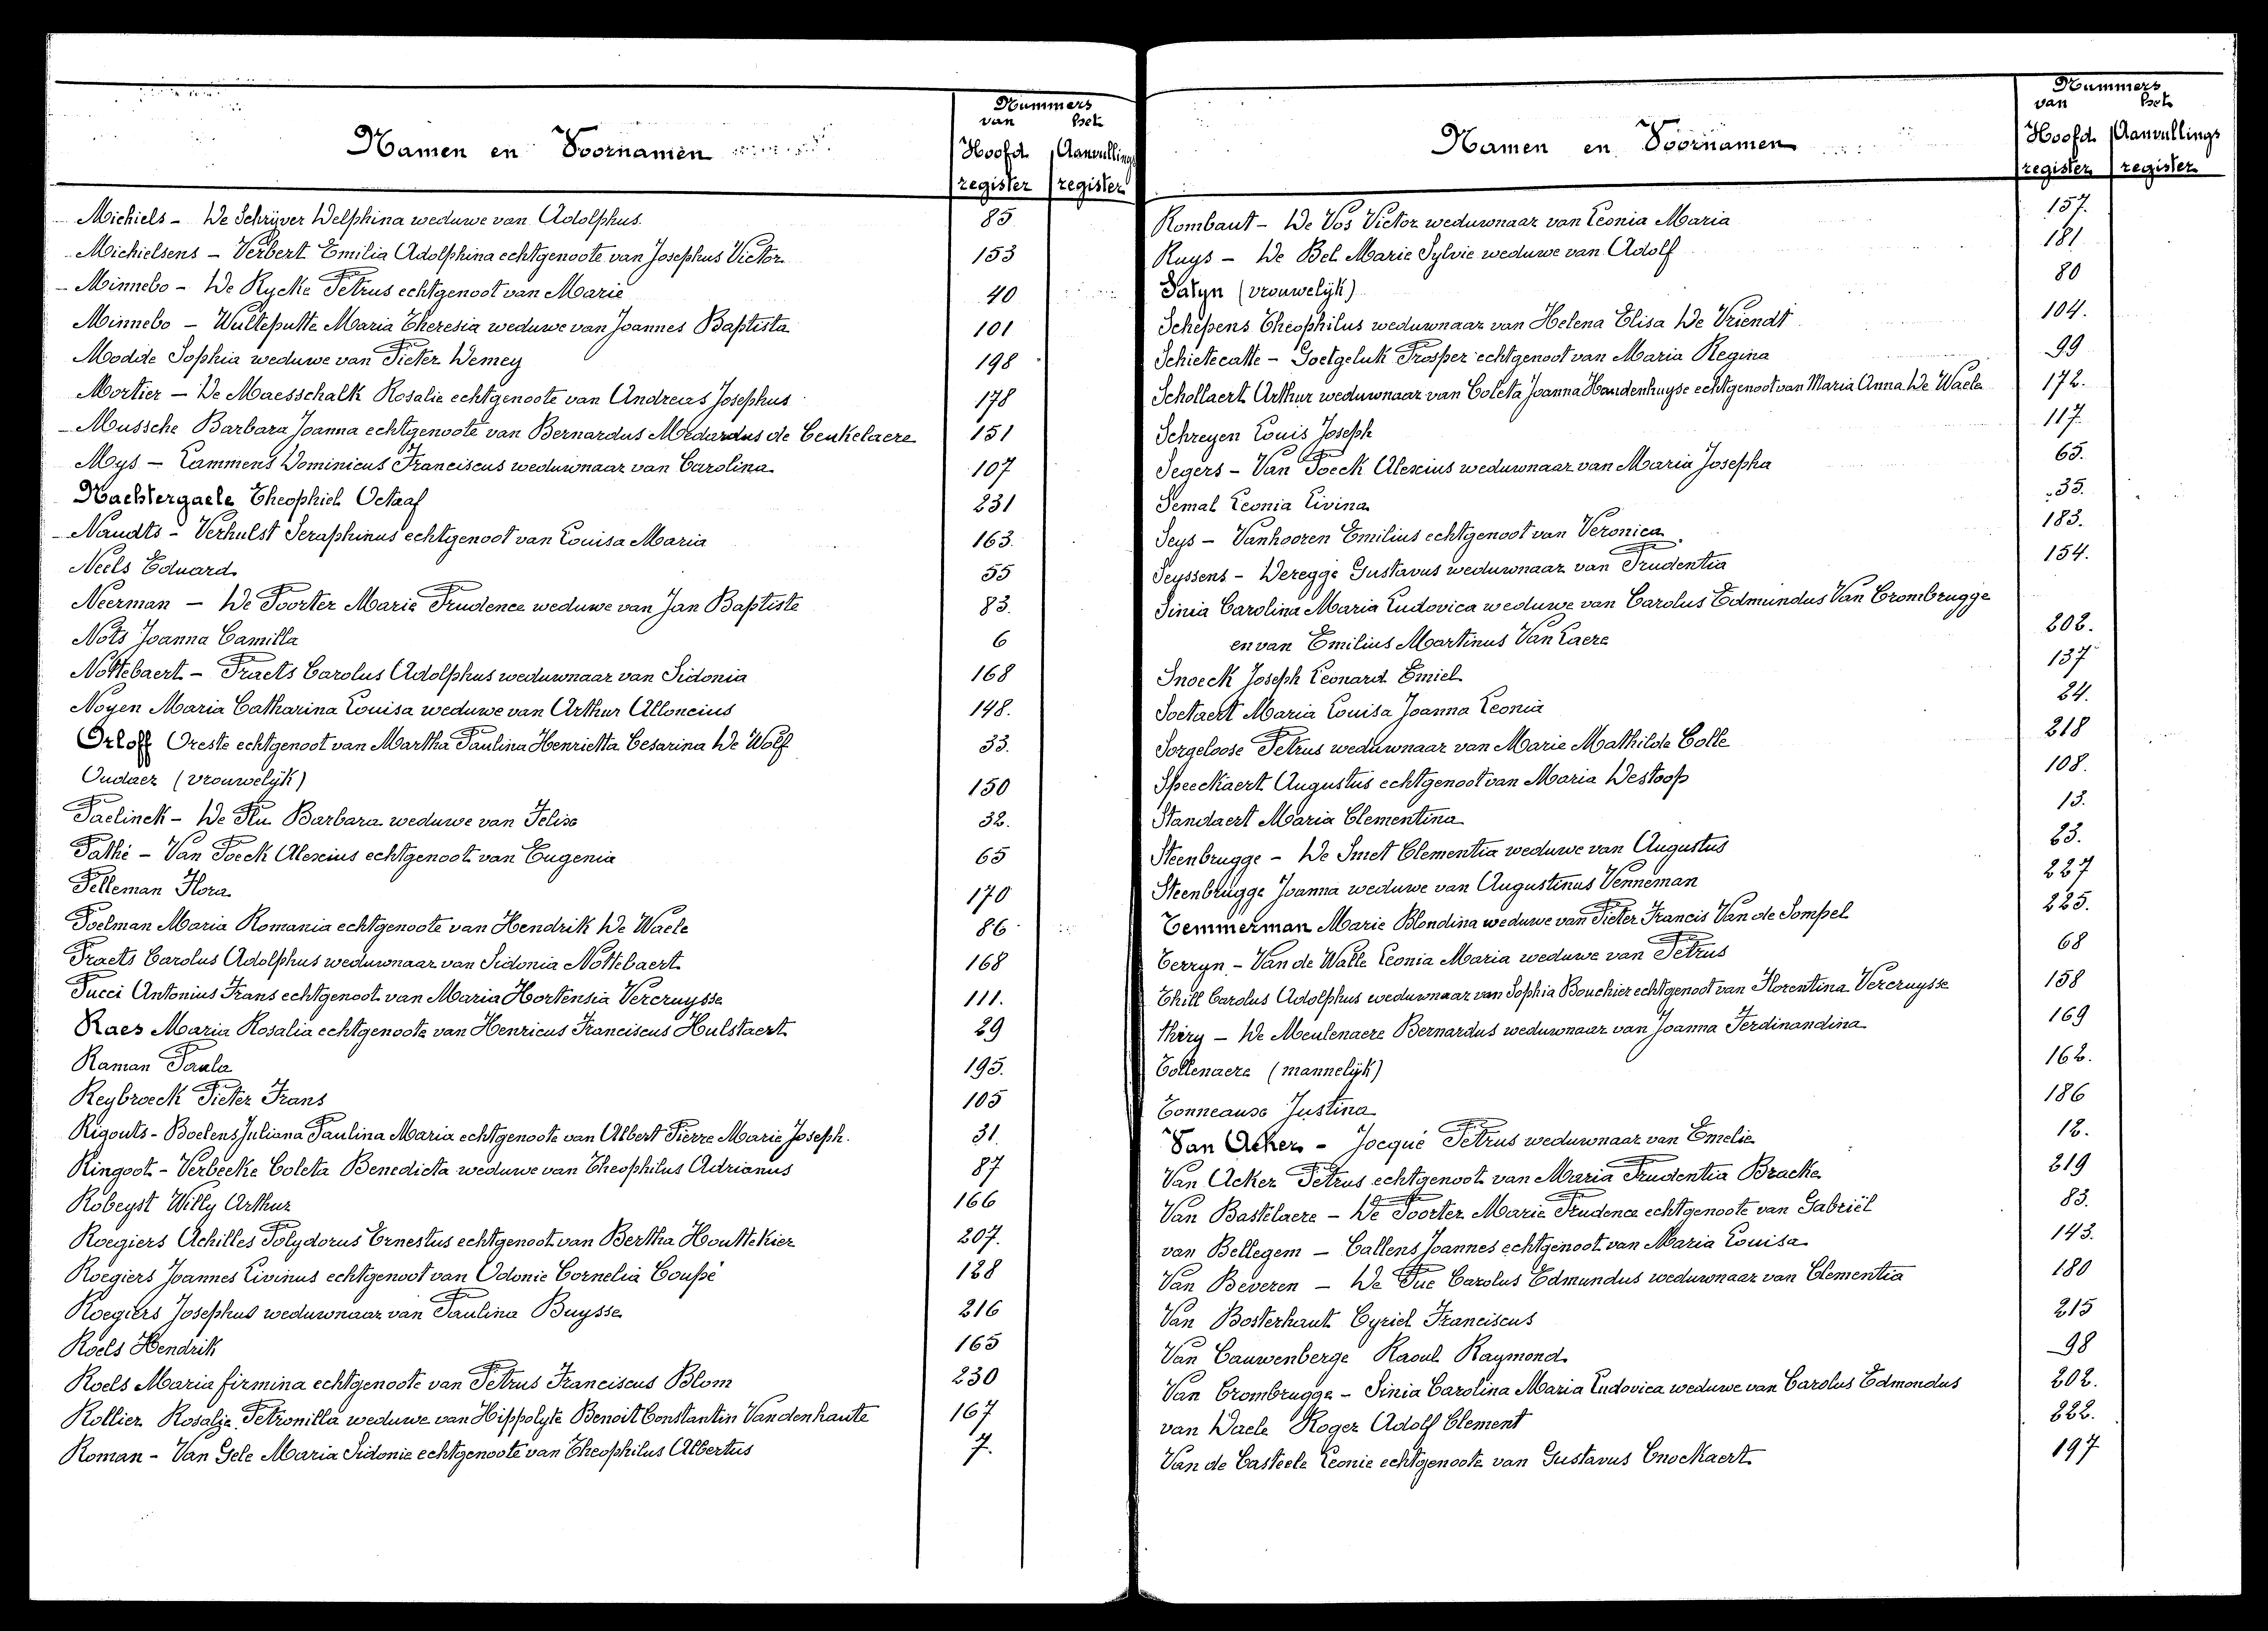 Nummers
van het
Namen en Voornamen
Hoofd Aanvullings
register register
Michiels - De Schrijver Delphina weduwe van Adolphus 85
Michielsens - Verbert Emilia Adolphina echtgenoote van Josephus Victor 153
Minnebo - De Rycke Petrus echtgenoot van Marie 40
Minnebo - Wulleputte Maria Theresia weduwe van Joannes Baptista 101
Modde Sophia weduwe van Pieter Demey 198
Mortier - De Maesschalk Rosalie echtgenoote van Andreas Josephus 178
Mussche Barbara Joanna echtgenoote van Bernardus Medardus de Ceukelaere 151
Mys - Lammens Dominicus Franciscus weduwnaar van Carolina 107
Nachtergaele Theophiel Octaaf 231
Naudts - Verhulst Seraphinus echtgenoot van Louisa Maria 163.
Neels Eduard 55
Neerman - De Poorter Marie Prudence weduwe van Jan Baptiste 83.
Nots Joanna Camilla 6
Nottebaert - Praets Carolus Adolphus weduwnaar van Sidonia 168
Noyen Maria Catharina Louisa weduwe van Arthur Alloncius 148.
Orloff Oreste echtgenoot van Martha Paulina Henrietta Cesarina De Wolf 33.
Oudaer (vrouwelijk) 150
Paelinck - De Plu Barbara weduwe van Felix 32.
Pathé - Van Poeck Alexius echtgenoot van Eugenia 65
Pelleman Flora 170
Poelman Maria Romania echtgenoote van Hendrik De Waele 86
Praets Carolus Adolphus weduwnaar van Sidonia Nottebaert 168
Pucci Antonius Frans echtgenoot van Maria Hortensia Vercruysse 111.
Raes Maria Rosalia echtgenoote van Henricus Franciscus Hulstaert 29
Raman Paula 195.
Reybroeck Pieter Frans 105
Rigouts - Boelens Juliana Paulina Maria echtgenoote van Albert Pierre Marie Joseph. 31.
Ringoot - Verbeeke Coleta Benedicta weduwe van Theophilus Adrianus 87
Robeyst Willy Arthur 166
Roegiers Achilles Polydorus Ernestus echtgenoot van Bertha Houttekier 207.
Roegiers Joannes Livinus echtgenoot van Odonie Cornelia Coupé 128
Roegiers Josephus weduwnaar van Paulina Buysse 216
Roels Hendrik 165
Roels Maria firmina echtgenoote van Petrus Franciscus Blom 230
Rollier Rosalie Petronilla weduwe van Hippolyte Benoit Constantin Vandenhaute 167
Roman - Van Gele Maria Sidonie echtgenoote van Theophilus Albertus 7.
Nummers
van het
Namen en Voornamen
Hoofd Aanvullings
register register
Rombaut - De Vos Victor weduwnaar van Leonia Maria 157.
Ruys - De Bel Marie Sylvie weduwe van Adolf 181
Satyn (vrouwelijk) 80
Schepens Theophilus weduwnaar van Helena Elisa De Vriendt 104.
Schietecatte - Goetgeluk Prosper echtgenoot van Maria Regina 99
Schollaert Arthur weduwnaar van Coleta Joanna Handenhuyse echtgenoot van Maria Anna De Waele 172.
Schreyen Louis Joseph 117.
Segers - Van Poeck Alexius weduwnaar van Maria Josepha 65.
Semal Leonia Livina 35.
Seys - Vanhooren Emilius echtgenoot van Veronica 183.
Seyssens - Deregge Gustavus weduwnaar van Prudentia 154.
Sinia Carolina Maria Ludovica weduwe van Carolus Edmundus Van Crombrugge
en van Emilius Martinus Van Laere 202.
Snoeck Joseph Leonard Emiel 137
Soetaert Maria Louisa Joanna Leonia 24.
Sorgeloose Petrus weduwnaar van Marie Mathilde Colle 218
Speeckaert Augustus echtgenoot van Maria Destoop 108.
Standaert Maria Clementina 13.
Steenbrugge - De Smet Clementia weduwe van Augustus 23.
Steenbrugge Joanna weduwe van Augustinus Venneman 227
Temmerman Marie Blondina weduwe van Pieter Francis Van de Sompel 225.
Terryn - Van de Walle Leonia Maria weduwe van Petrus 68
Thill Carolus Adolphus weduwnaar van Sophia Bouchier echtgenoot van Florentina Vercruysse 158
thiry - De Meulenaere Bernardus weduwnaar van Joanna Ferdinandina 169
Tollenaere (mannelijk) 162.
Tonneaux Justina 186
Van Acker - Jocqué Petrus weduwnaar van Emelie 12.
Van Acker Petrus echtgenoot van Maria Prudentia Bracke 219
Van Bastelaere - De Poorter Marie Prudence echtgenoote van Gabriël 83.
van Bellegem - Callens Joannes echtgenoot van Maria Louisa 143.
Van Beveren - De Pue Carolus Edmundus weduwnaar van Clementia 180
Van Bosterhaut Cyriel Franciscus 215
Van Cauwenberge Raoul Raymond 98
Van Crombrugge - Sinia Carolina Maria Ludovica weduwe van Carolus Edmondus 202.
van Daele Roger Adolf Clement 222.
Van de Casteele Leonie echtgenoote van Gustavus Cnockaert 197